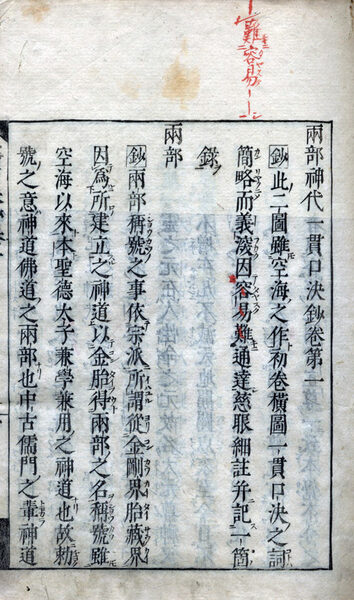 難容易
兩部神代一貫口決鈔卷第一
鈔此二圖雖空海之作初卷橫圖一貫口決之詞
簡略而義深因容易難通達慈眠細註并記一箇
錄
兩部
鈔兩部稱號之事依宗派所謂從金剛界胎藏界
因爲所建立之神道以金胎得兩部之名稱號雖
空海以來本聖德太子兼學兼用之神道也故勅
號之意神道佛道之兩部也中古儒門之輩神道